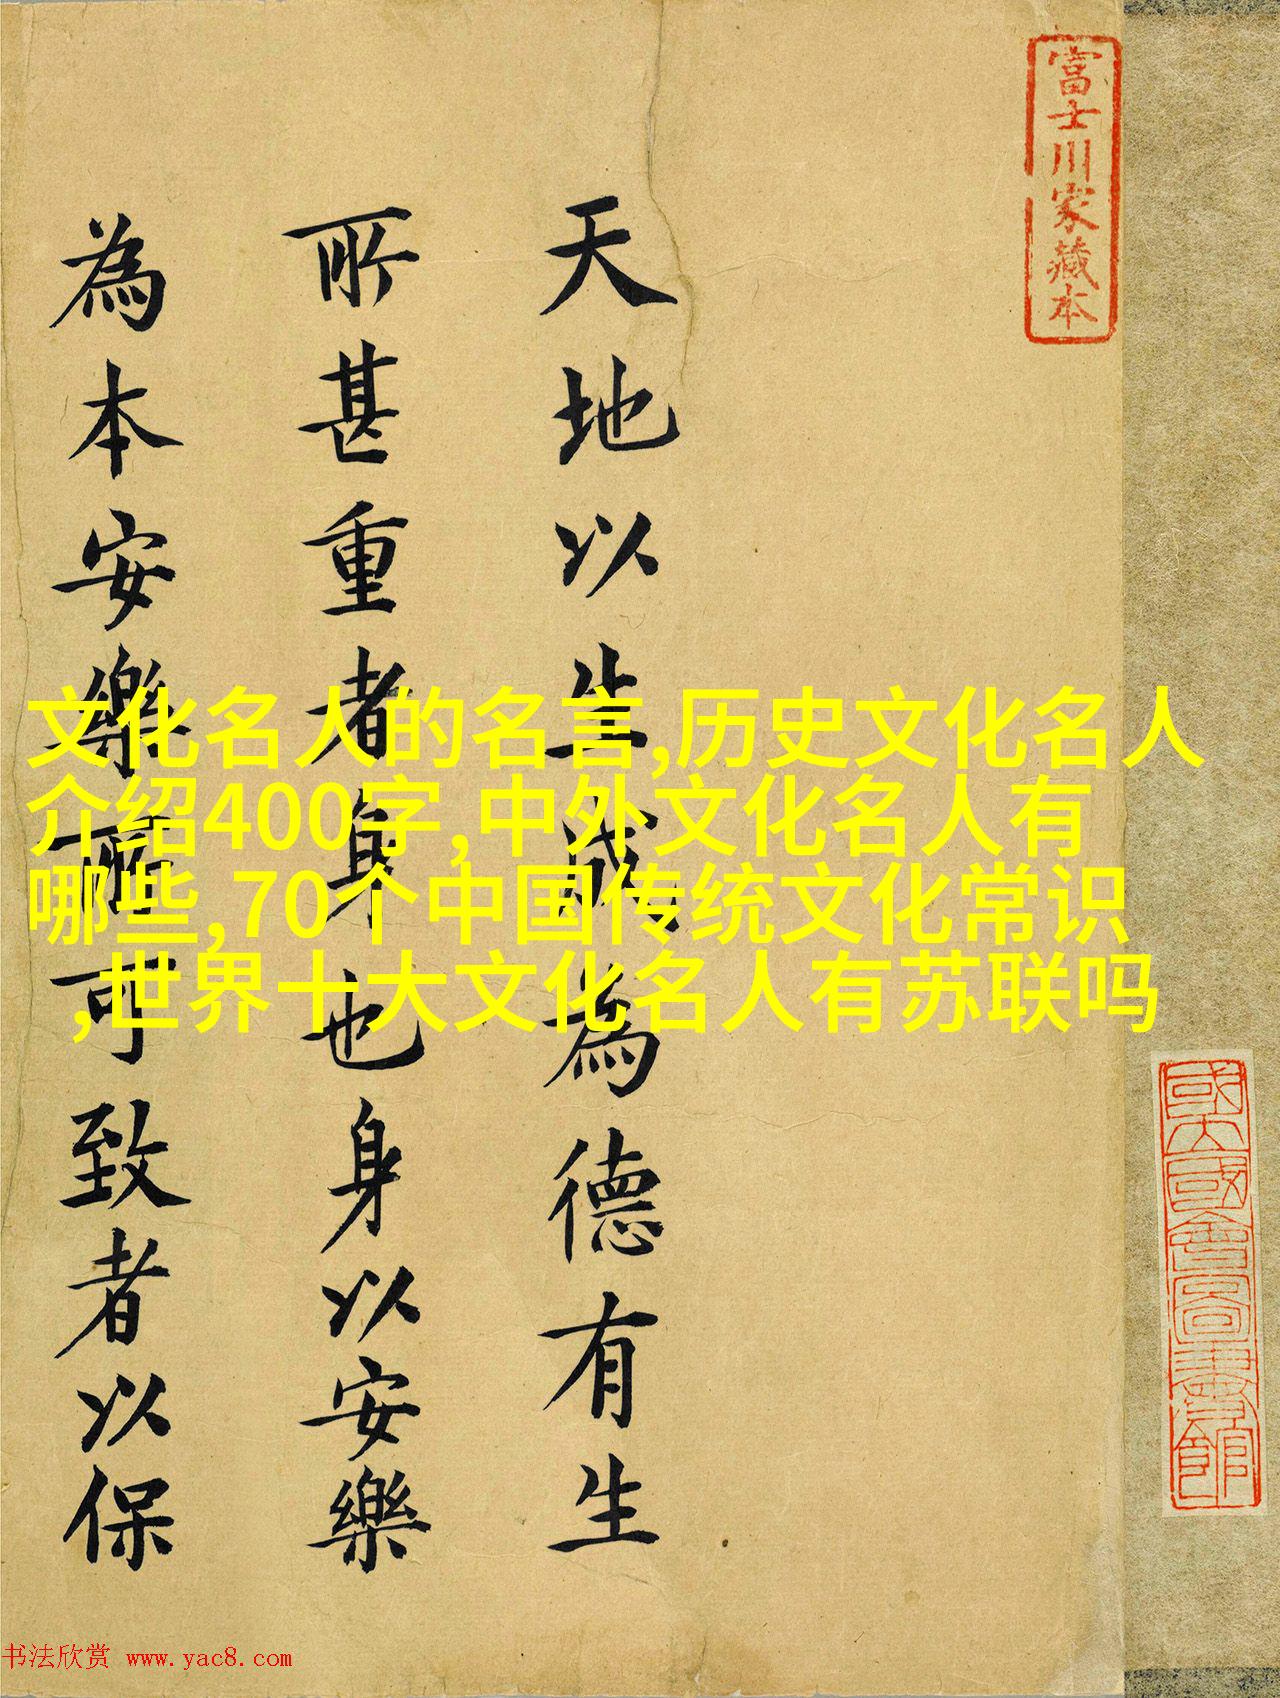 富士川家藏本
國立國會圖書館
天地以生成為德有生
所甚重者身也身以安樂
為本安樂所可致者以保
文化名人的名言,历史文化名人
介绍400字,中外文化名人有
哪些,70个中国传统文化常识
,世界十大文化名人有苏联吗
书法欣赏 www.yac8.com